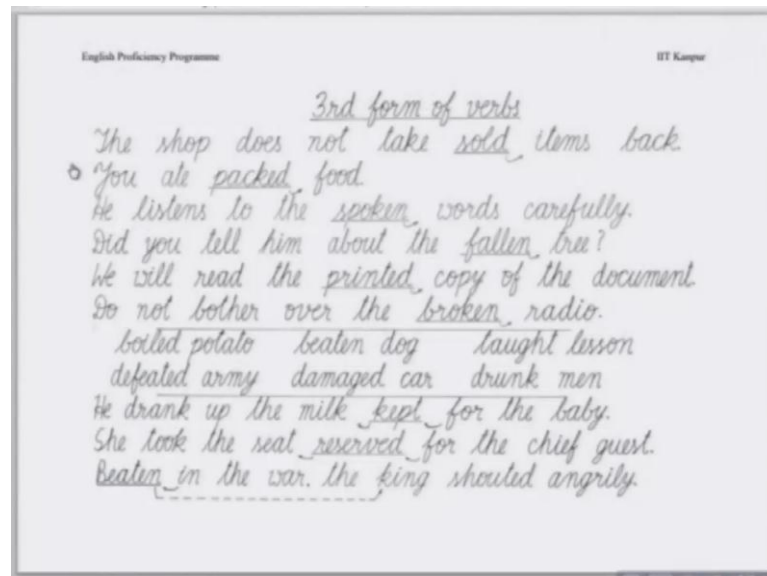 English Proficiency Programme IIT Kanpur
3rd form of verbs
The shop does not take sold items back.
You ate packed food.
He listens to the spoken words carefully.
Did you tell him about the fallen tree?
We will read the printed copy of the document.
Do not bother over the broken radio.
boiled potato beaten dog taught lesson
defeated army damaged car drunk men
He drank up the milk kept for the baby.
She took the seat reserved for the chief guest.
Beaten in the war, the king shouted angrily.